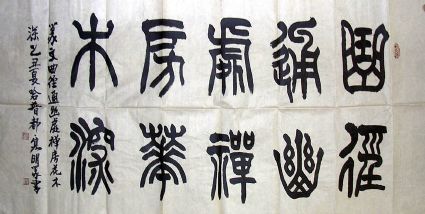 曲徑
通幽
處禪
房華
木深
曲徑通幽處禪房花木
深乙丑夏